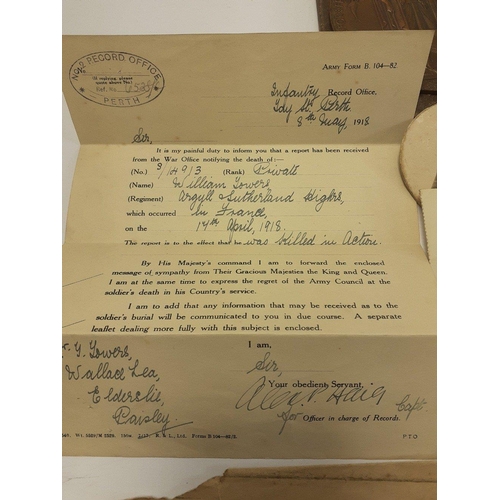 No 2 RECORD OFFICE
PERTH
ARMY FORM B. 104—82.
Infantry Record Office,
Perth
8th May, 1918
Sir,
It is my painful duty to inform you that a report has been received
from the War Office notifying the death of:—
(No.) S/14913 (Rank) Private
(Name) William Towers
(Regiment) Argyll & Sutherland Highrs,
which occurred in France,
on the 14th April, 1918.
The report is to the effect that he was Killed in Action.
By His Majesty's command I am to forward the enclosed
message of sympathy from Their Gracious Majesties the King and Queen.
I am at the same time to express the regret of the Army Council at the
soldier's death in his Country's service.
I am to add that any information that may be received as to the
soldier's burial will be communicated to you in due course. A separate
leaflet dealing more fully with this subject is enclosed.
I am,
Sir,
Your obedient Servant,
Capt
for Officer in charge of Records.
Towers,
Wallace Lea,
Elderslie,
Paisley
P.T.O